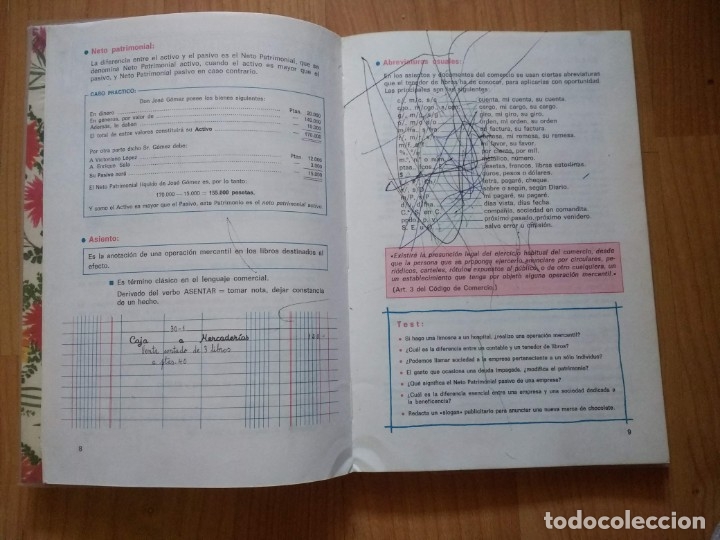 Neto patrimonial:
La diferencia entre el activo y el pasivo es el Neto Patrimonial, que se
denomina Neto Patrimonial activo, cuando el activo es mayor que el
pasivo, y Neto Patrimonial pasivo en caso contrario.
CASO PRACTICO:
Don José Gómez posee los bienes siguientes:
En dinero Ptas. 20.000
En géneros, por valor de 140.000
Además, le deben 10.000
El total de estos valores constituirá su Activo 170.000
Por otra parte dicho Sr. Gómez debe:
A Victoriano López Ptas. 12.000
A Enrique Gala 3.000
Su Pasivo será 15.000
El Neto Patrimonial líquido de José Gómez es, por lo tanto:
170.000 — 15.000 = 155.000 pesetas.
Y como el Activo es mayor que el Pasivo, este Patrimonio es el neto patrimonial activo.
Asiento:
Es la anotación de una operación mercantil en los libros destinados al
efecto.
Es término clásico en el lenguaje comercial.
Derivado del verbo ASENTAR = tomar nota, dejar constancia
de un hecho.
30-1
Caja a Mercaderías
Venta contado de 3 libros
a ptas. 40
8
Abreviaturas usuales:
En los asientos y documentos del comercio se usan ciertas abreviaturas
que el tenedor de libros ha de conocer, para aplicarlas con oportunidad.
Las principales son las siguientes:
cuenta, mi cuenta, su cuenta.
cargo, mi cargo, su cargo.
giro, mi giro, su giro.
orden, mi orden, su orden
factura, su factura.
remesa, mi remesa, su remesa.
mi favor, su favor.
por ciento, por mil.
metálico, número.
pesetas, francos, libras esterlinas.
Duros, pesos o dólares.
letra, pagaré, cheque.
sobre o según, según Diario.
mi pagaré, su pagaré.
días vista, días fecha
compañía, sociedad en comandita.
próximo pasado, próximo venidero.
salvo error u omisión.
«Existirá la presunción legal del ejercicio habitual del comercio, desde
que la persona que se proponga ejercerlo anunciare por circulares, pe-
riódicos, carteles, rótulos expuestos al público, o de otro cualquiera, un
un establecimiento que tenga por objeto alguna operación mercantil.»
(Art. 3 del Código de Comercio)
Test:
Si hago una limosna a un hospital, ¿realizo una operación mercantil?
¿Cuál es la diferencia entre un contable y un tenedor de libros?
¿Podemos llamar sociedad a la empresa perteneciente a un sólo individuo?
El gasto que ocasiona una deuda impagada, ¿modifica el patrimonio?
¿Qué significa el Neto Patrimonial pasivo de una empresa?
¿Cuál es la diferencia esencial entre una empresa y una sociedad dedicada a
la beneficencia?
Redacta un «slogan» publicitario para anunciar una nueva marca de chocolate.
9
todocoleccion